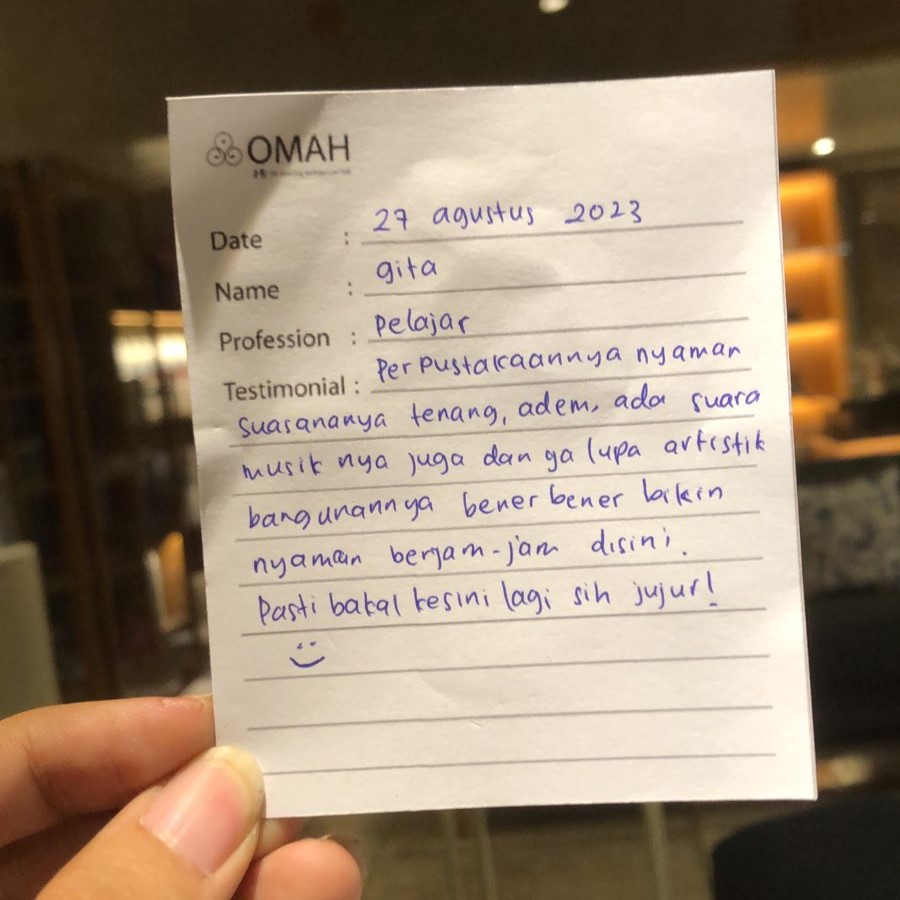 OMAH
Date : 27 agustus 2023
Name : gita
Profession : pelajar
Testimonial : Perpustakaannya nyaman
suasananya tenang, adem, ada suara
musik nya juga dan ga lupa artistik
bangunannya bener bener bikin
nyaman berjam-jam disini.
Pasti bakal kesini lagi sih jujur!